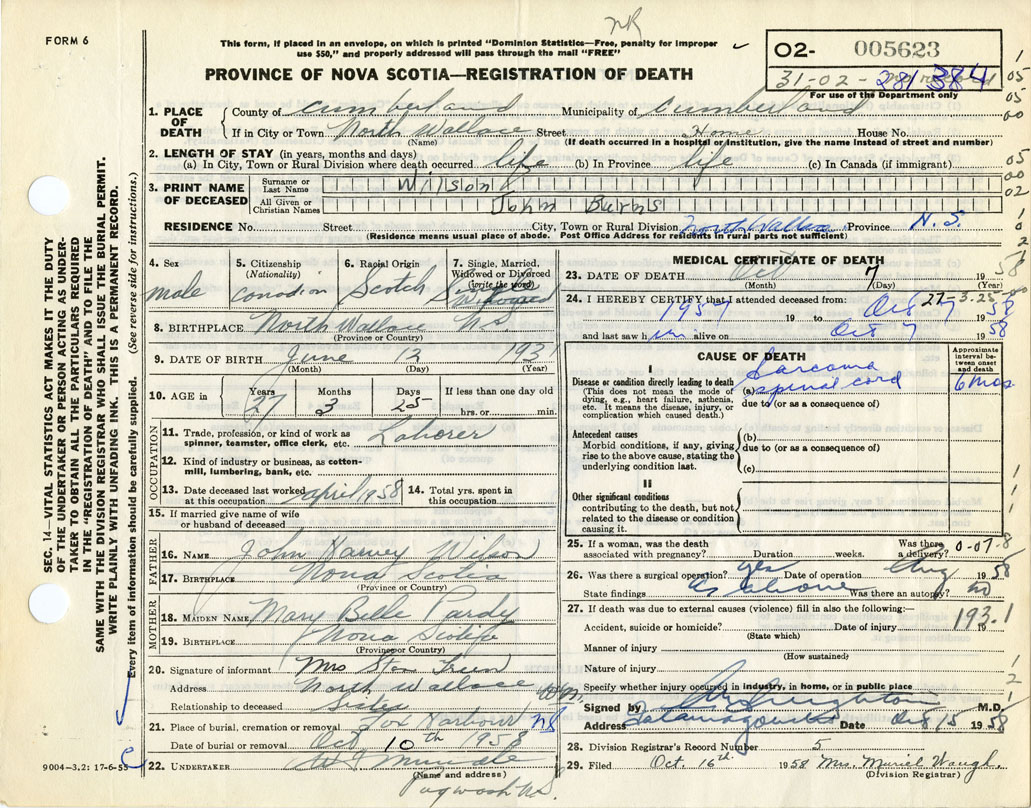 NR
FORM 6
This form, if placed in an envelope, on which is printed "Dominion Statistics—Free, penalty for improper
use $50," and properly addressed will pass through the mail "FREE"
O2- 005623
31-02-281384
For use of the Department only
PROVINCE OF NOVA SCOTIA—REGISTRATION OF DEATH
1. PLACE OF DEATH
County of Cumberland Municipality of Cumberland
If in City or Town North Wallace Street Home House No.
(Name) (If death occurred in a hospital or institution, give the name instead of street and number)
2. LENGTH OF STAY (in years, months and days)
(a) In City, Town or Rural Division where death occurred life (b) In Province life (c) In Canada (if immigrant)
3. PRINT NAME OF DECEASED
Surname or Last Name Wilson
All Given or Christian Names John Burns
RESIDENCE No. Street City, Town or Rural Division North Wallace Province N.S.
(Residence means usual place of abode. Post Office Address for residents in rural parts not sufficient)
4. Sex male
5. Citizenship (Nationality) Canadian
6. Racial Origin Scotch
7. Single, Married, Widowed or Divorced (write the word)
8. BIRTHPLACE North Wallace N.S.
(Province or Country)
9. DATE OF BIRTH June 12 1931
(Month) (Day) (Year)
10. AGE in Years 27 Months 3 Days 25 If less than one day old
hrs. or min.
OCCUPATION
11. Trade, profession, or kind of work as spinner, teamster, office clerk, etc. Laborer
12. Kind of industry or business, as cotton-mill, lumbering, bank, etc.
13. Date deceased last worked at this occupation April 1958 14. Total yrs. spent in this occupation
15. If married give name of wife or husband of deceased
FATHER
16. NAME John Harvey Wilson
17. BIRTHPLACE Nova Scotia
(Province or Country)
MOTHER
18. MAIDEN NAME Mary Belle Pardy
19. BIRTHPLACE Nova Scotia
(Province or Country)
20. Signature of informant Mrs Stan
Address North Wallace
Relationship to deceased Sister
21. Place of burial, cremation or removal Fox Harbour NS
Date of burial or removal Oct 10th 1958
22. UNDERTAKER
(Name and address)
Pugwash N.S.
MEDICAL CERTIFICATE OF DEATH
23. DATE OF DEATH Oct 7 1958
(Month) (Day) (Year)
24. I HEREBY CERTIFY that I attended deceased from:
27-3-25
1957 19 to Oct 7 1958
and last saw him alive on Oct 7 1958
CAUSE OF DEATH
Approximate interval between onset and death
I
Disease or condition directly leading to death
(This does not mean the mode of dying, e.g., heart failure, asthenia, etc. It means the disease, injury, or complication which caused death.)
(a) Sarcoma spinal cord 6 mos
due to (or as a consequence of)
Antecedent causes
Morbid conditions, if any, giving rise to the above cause, stating the underlying condition last.
(b)
due to (or as a consequence of)
(c)
II
Other significant conditions contributing to the death, but not related to the disease or condition causing it.
25. If a woman, was the death associated with pregnancy? Duration weeks. Was there a delivery?
26. Was there a surgical operation? yes Date of operation Aug 1958
State findings as above Was there an autopsy? no
27. If death was due to external causes (violence) fill in also the following:—
193.1
Accident, suicide or homicide? Date of injury 19
(State which)
Manner of injury
(How sustained)
Nature of injury
Specify whether injury occurred in industry, in home, or in public place
Signed by M.D.
Address Tatamagouche Date Oct 15 1958
28. Division Registrar's Record Number 5
29. Filed Oct. 16th 1958 Mrs. Muriel Waugh.
(Division Registrar)
SEC. 14—VITAL STATISTICS ACT MAKES IT THE DUTY
OF THE UNDERTAKER OR PERSON ACTING AS UNDER-
TAKER TO OBTAIN ALL THE PARTICULARS REQUIRED
IN THE "REGISTRATION OF DEATH" AND TO FILE THE
SAME WITH THE DIVISION REGISTRAR WHO SHALL ISSUE THE BURIAL PERMIT.
WRITE PLAINLY WITH UNFADING INK. THIS IS A PERMANENT RECORD.
Every item of information should be carefully supplied. (See reverse side for instructions.)
9004-3.2: 17-6-55